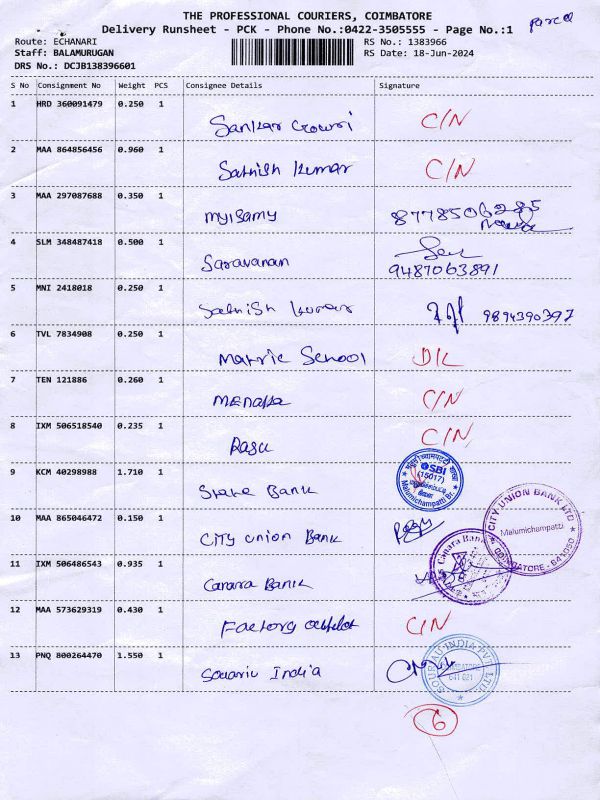 THE PROFESSIONAL COURIERS, COIMBATORE
Delivery Runsheet - PCK - Phone No.:0422-3505555 - Page No.:1
Route: ECHANARI RS No.: 1383966
Staff: BALAMURUGAN RS Date: 18-Jun-2024
DRS No.: DCJB138396601
S No Consignment No Weight PCS Consignee Details Signature
1 HRD 360091479 0.250 1 Sankar Gowri C/N
2 MAA 864856456 0.960 1 Sathish Kumar C/N
3 MAA 297087688 0.350 1 Mylsamy 8778506285
4 SLM 348487418 0.500 1 Saravanan
9487063891
5 MNI 2418018 0.250 1 Sathish Kumar 9894390397
6 TVL 7834908 0.250 1 Matric School D/L
7 TEN 121886 0.260 1 Menaka C/N
8 IXM 506518540 0.235 1 Rasu C/N
9 KCM 40298988 1.710 1 State Bank
SBI
(15017)
Malumichampatti Br.
10 MAA 865046472 0.150 1 City Union Bank
CITY UNION BANK LTD
Malumichampatti
COIMBATORE - 641050
11 IXM 506486543 0.935 1 Canara Bank
Canara Bank
12 MAA 573629319 0.430 1 Factory C/N
13 PNQ 800264470 1.550 1 India
INDIA PVT. LTD.
COIMBATORE
641 021
6